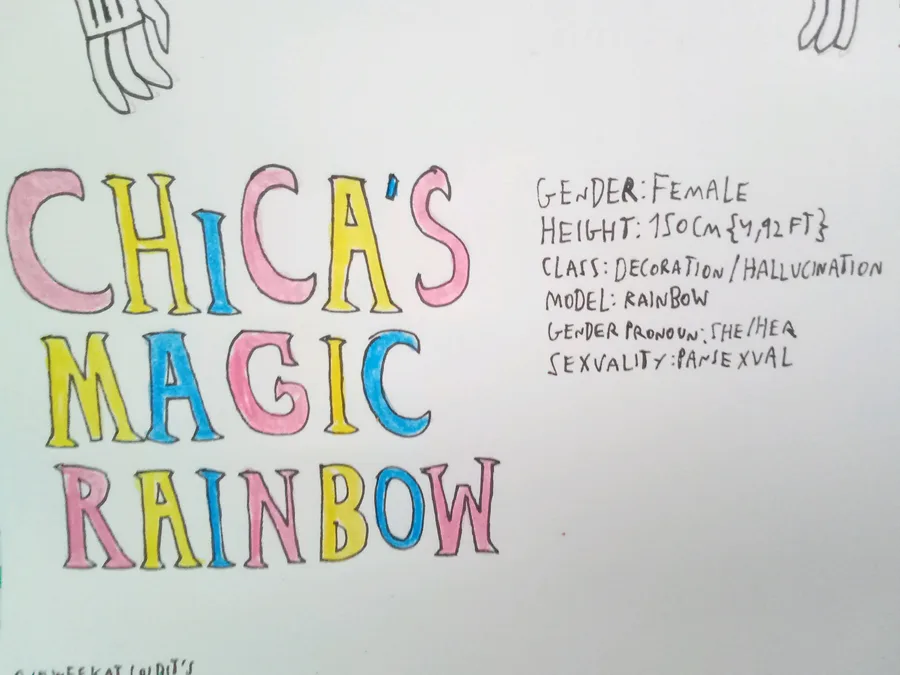 CHICA'S
MAGIC
RAINBOW
GENDER: FEMALE
HEIGHT: 150CM {4,92 FT}
CLASS: DECORATION/HALLUCINATION
MODEL: RAINBOW
GENDER PRONOUN: SHE/HER
SEXUALITY: PANSEXUAL